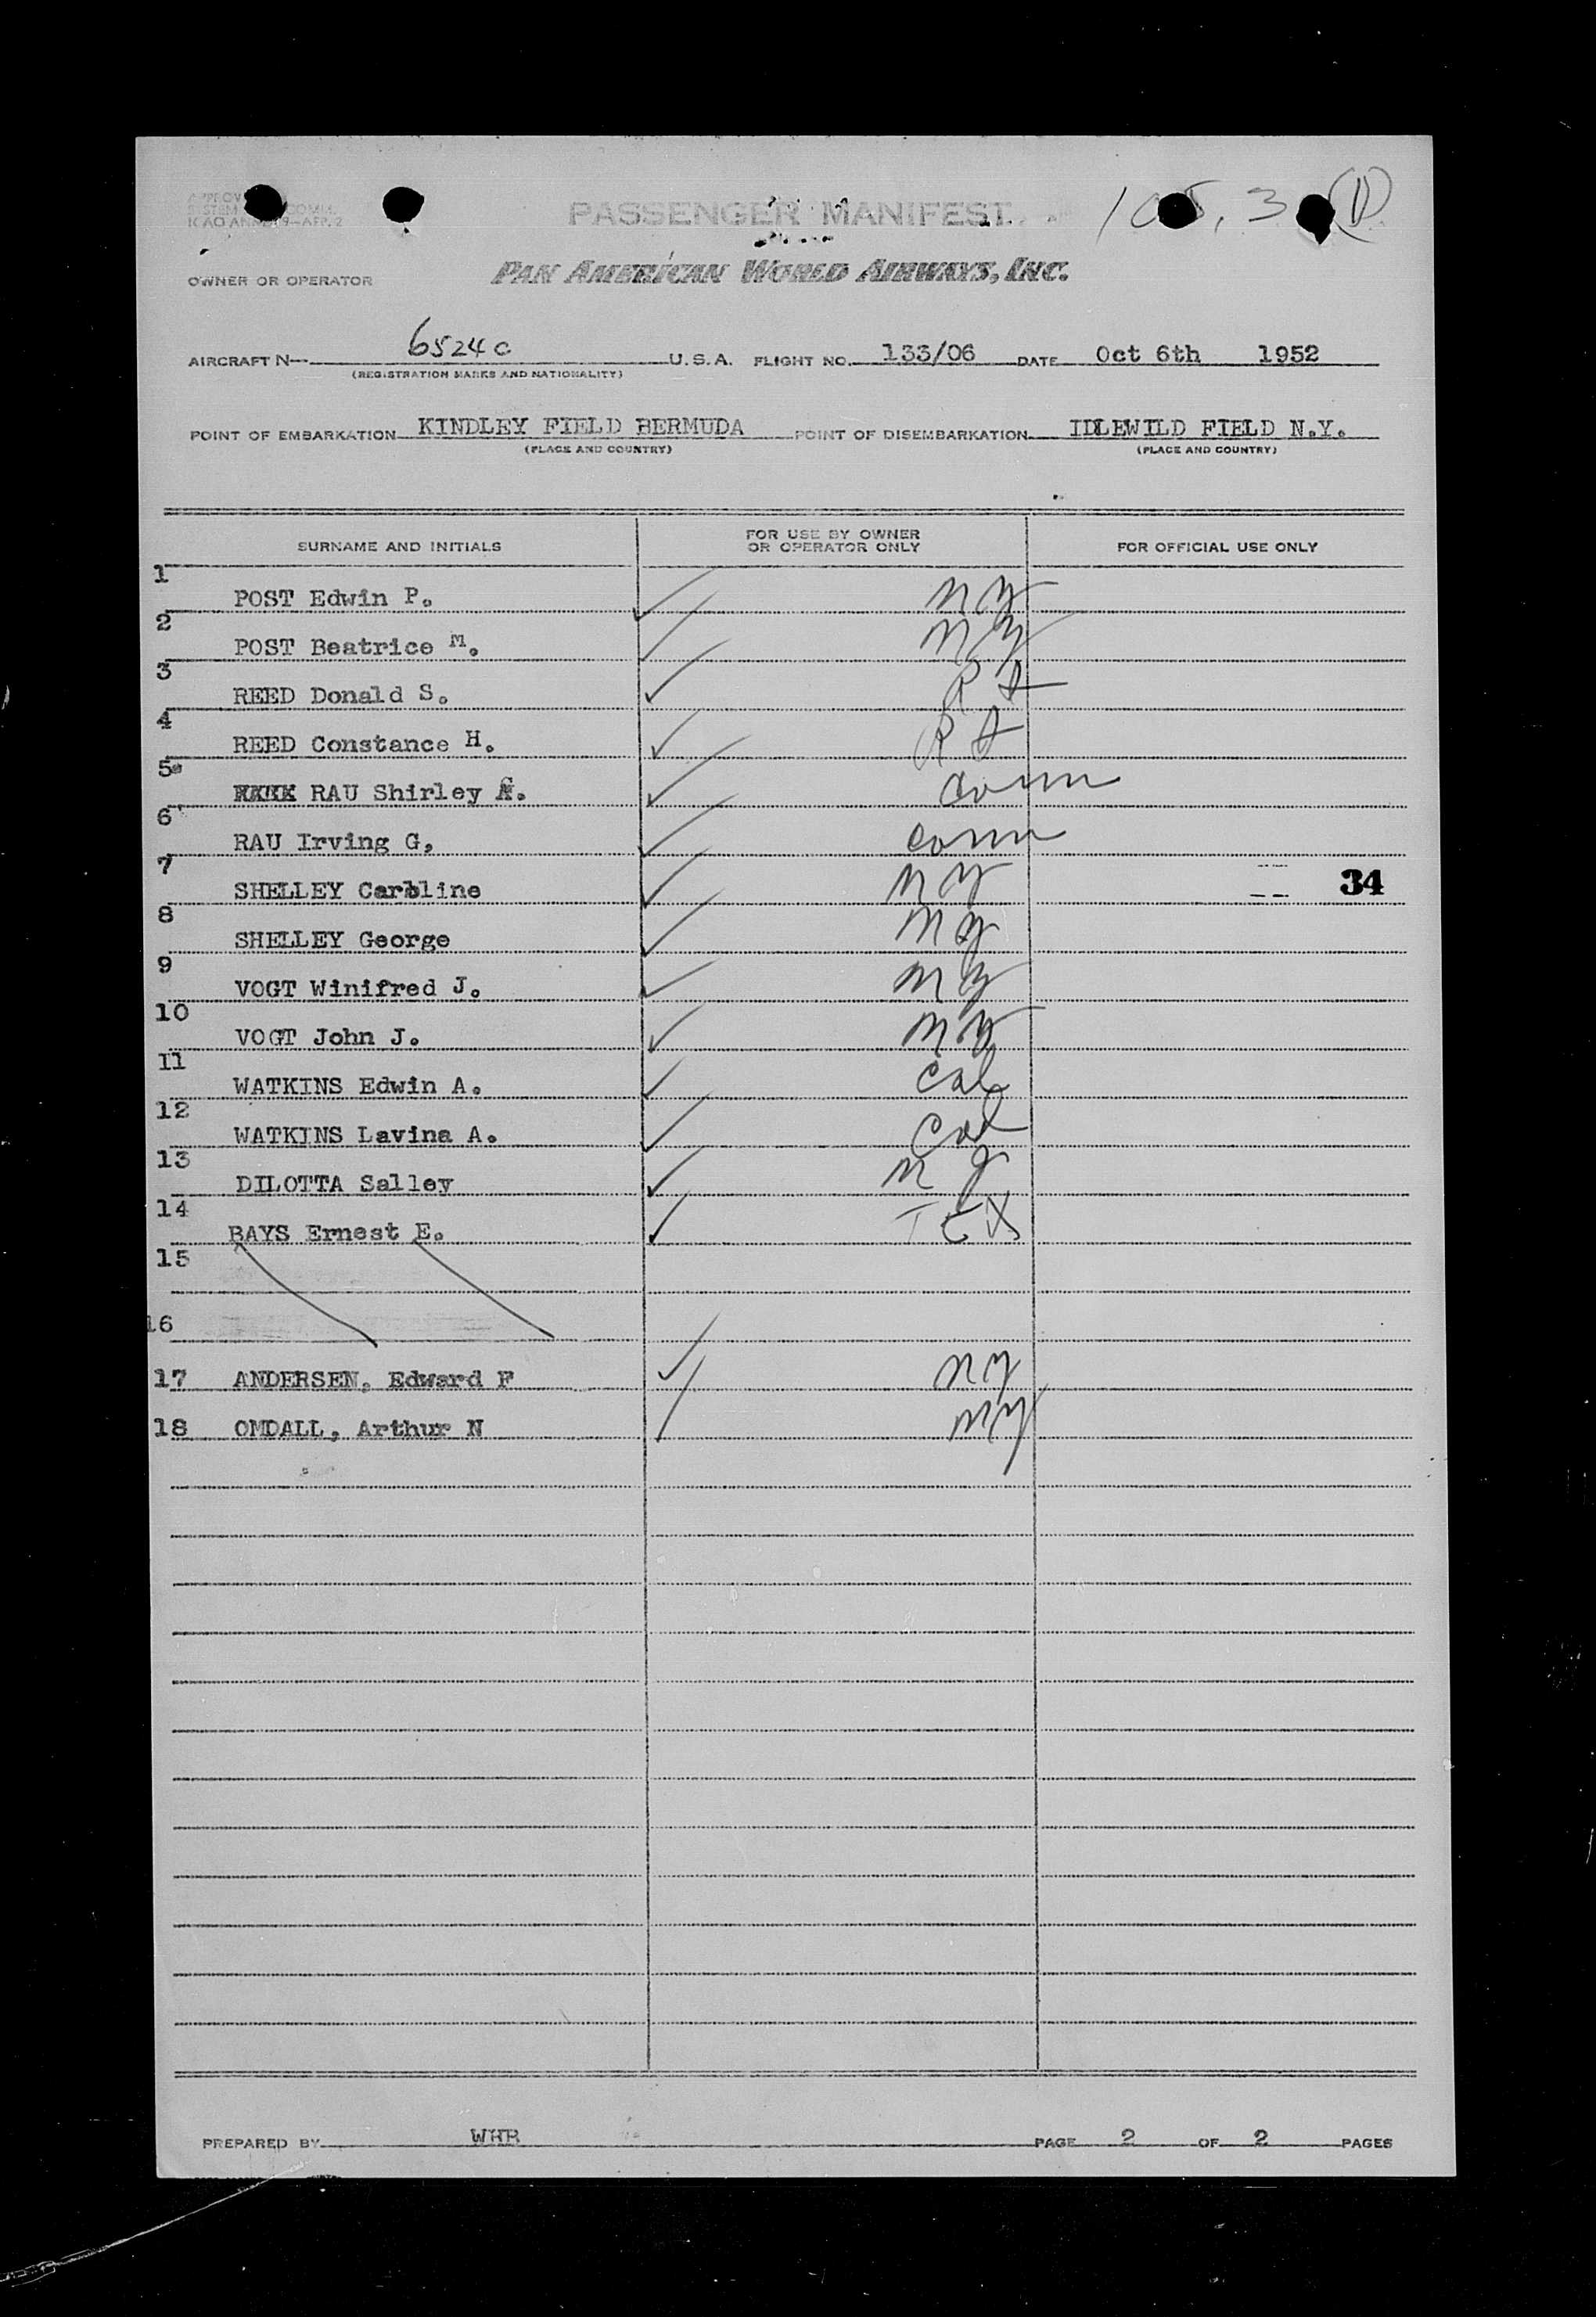 PASSENGER MANIFEST
105,3 (1)
OWNER OR OPERATOR PAN AMERICAN WORLD AIRWAYS, INC.
AIRCRAFT N— 6524C U.S.A. FLIGHT NO. 133/06 DATE Oct 6th 1952
(REGISTRATION MARKS AND NATIONALITY)
POINT OF EMBARKATION KINDLEY FIELD BERMUDA POINT OF DISEMBARKATION IDLEWILD FIELD N.Y.
(PLACE AND COUNTRY) (PLACE AND COUNTRY)
SURNAME AND INITIALS FOR USE BY OWNER OR OPERATOR ONLY FOR OFFICIAL USE ONLY
1 POST Edwin P. ✓ NY
2 POST Beatrice M. ✓ NY
3 REED Donald S. ✓ RI
4 REED Constance H. ✓ RI
5 RAU Shirley ✓ Conn
6 RAU Irving G, ✓ Conn
7 SHELLEY Caroline ✓ NY 34
8 SHELLEY George ✓ NY
9 VOGT Winifred J. ✓ NY
10 VOGT John J. ✓ NY
11 WATKINS Edwin A. ✓ Cal
12 WATKINS Lavina A. ✓ Cal
13 DILOTTA Salley ✓ NJ
14 BAYS Ernest E. ✓ TEX
15
16
17 ANDERSEN, Edward F ✓ NY
18 OMDALL, Arthur N / NY
PREPARED BY WHR PAGE 2 OF 2 PAGES